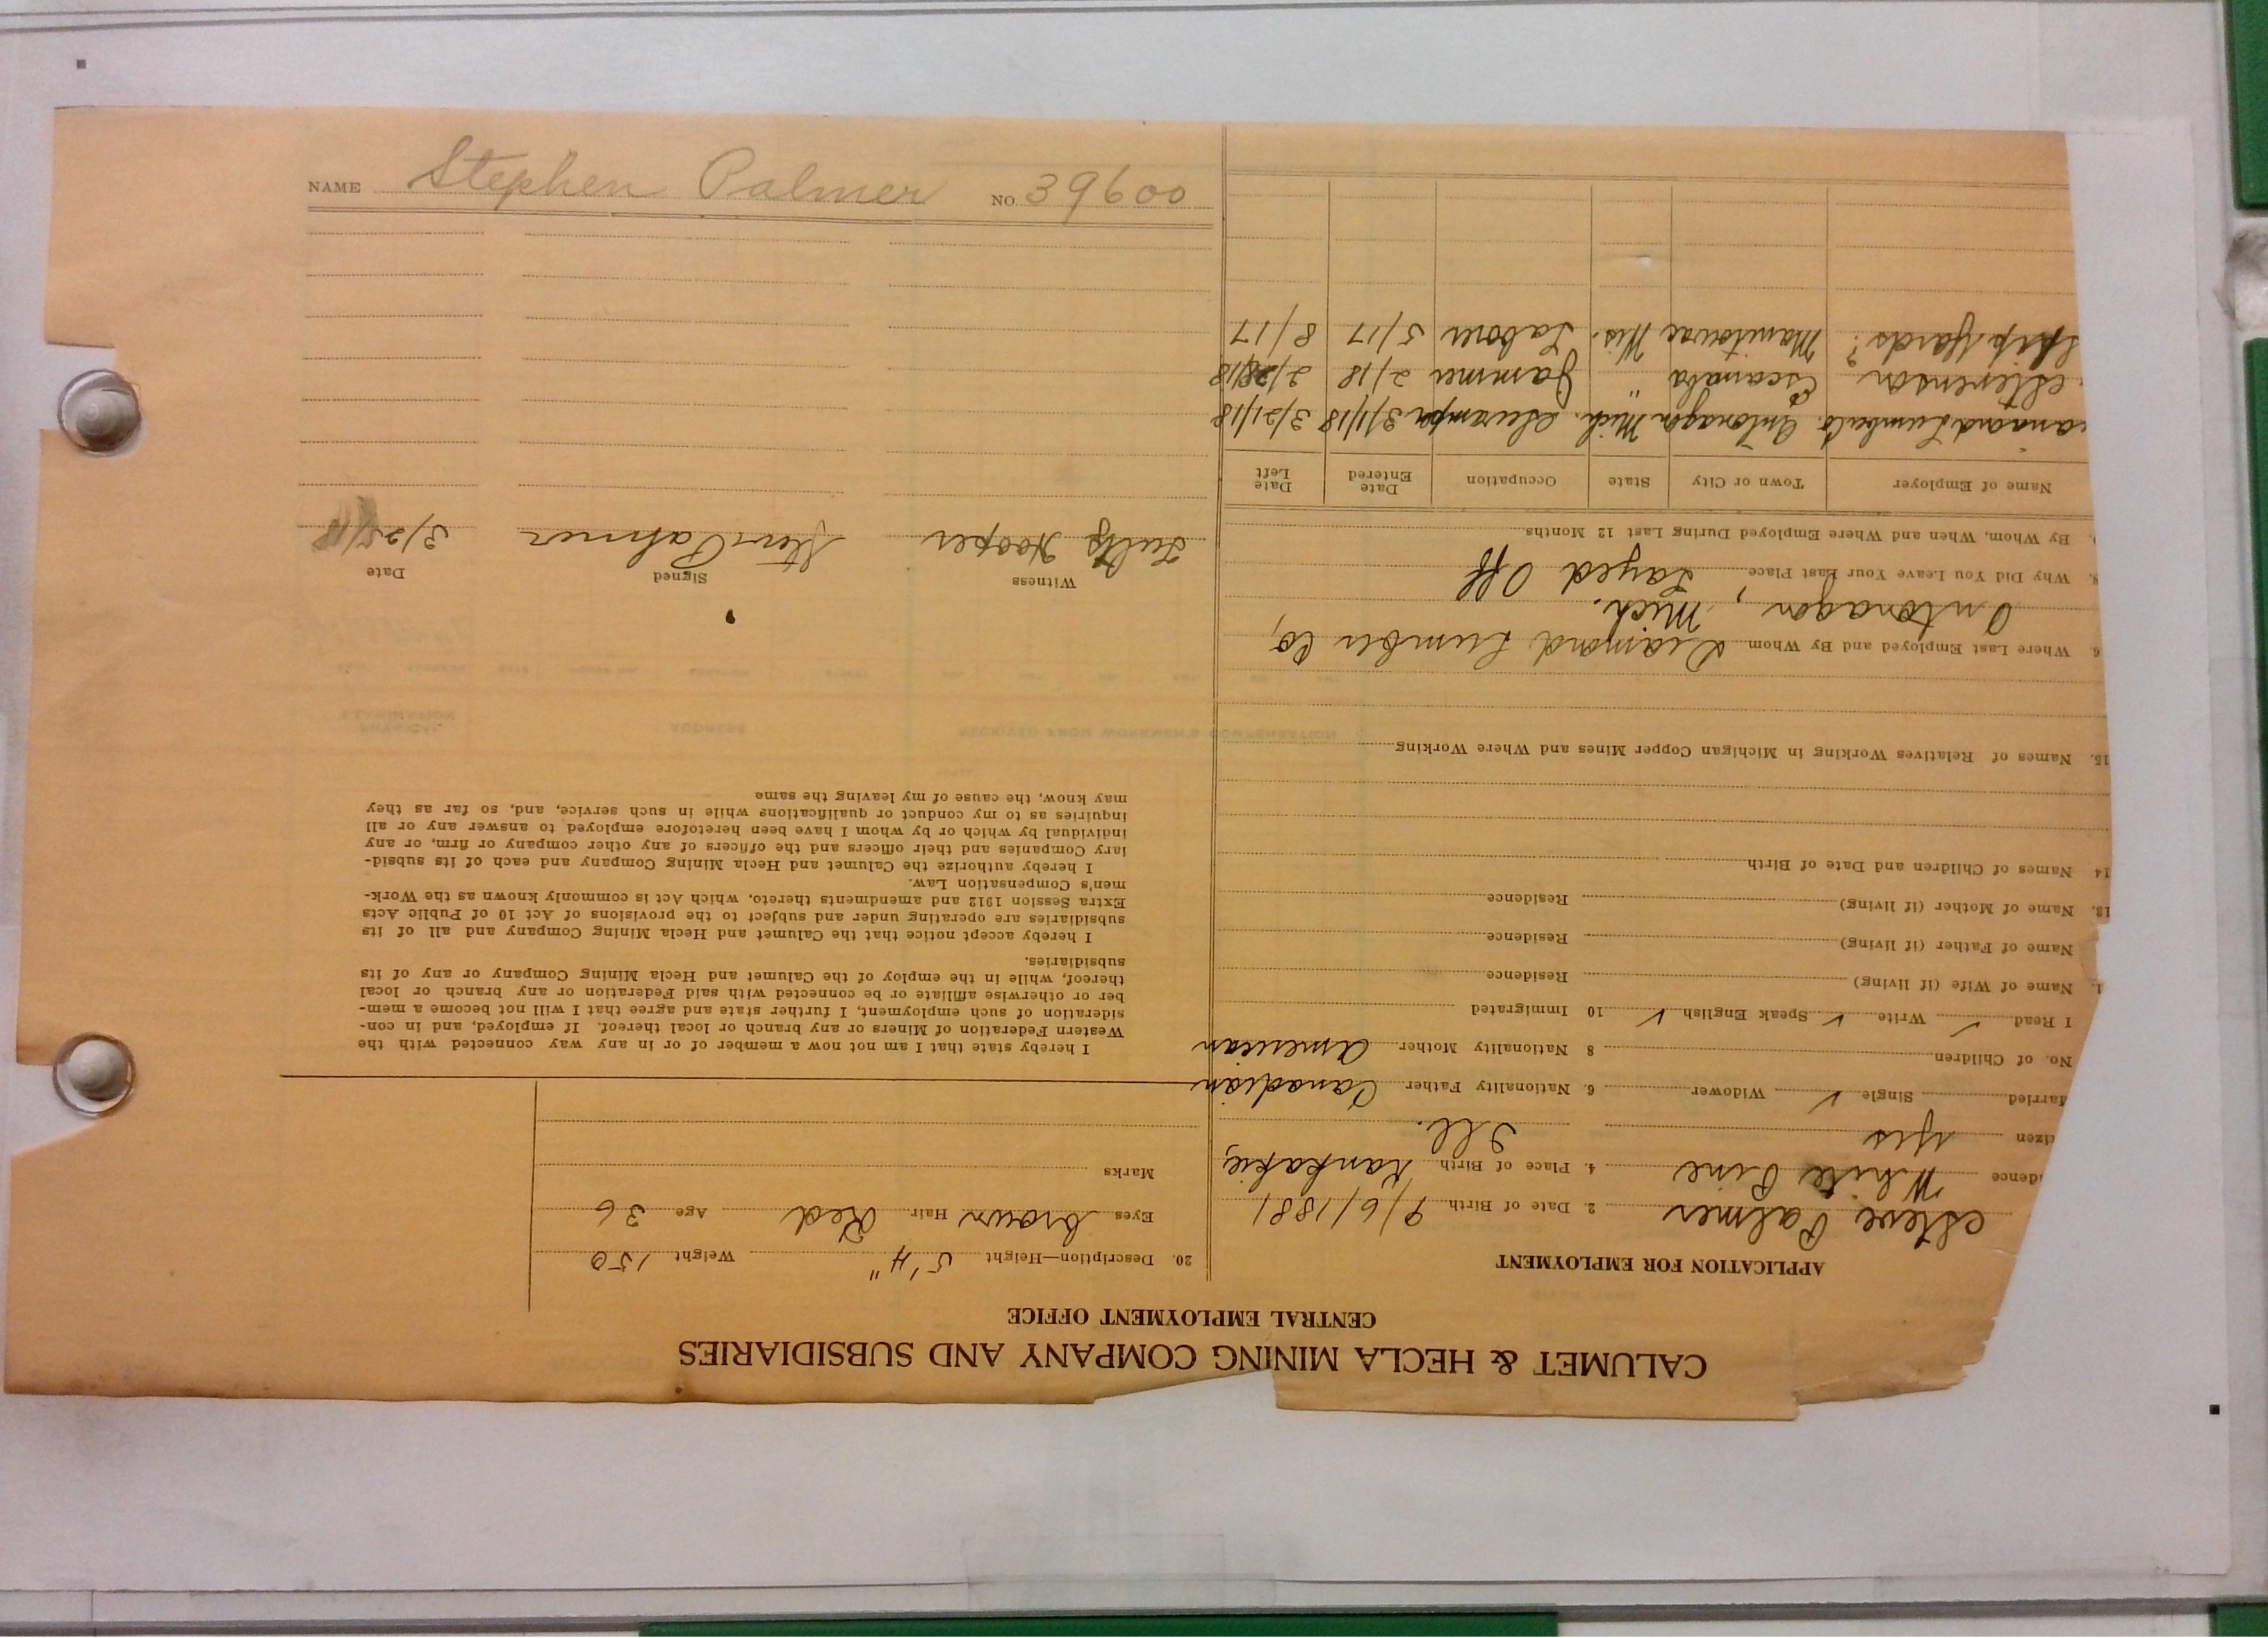 CALUMET & HECLA MINING COMPANY AND SUBSIDIARIES
CENTRAL EMPLOYMENT OFFICE
APPLICATION FOR EMPLOYMENT
Steve Palmer 2. Date of Birth 9/6/1881
dence White Pine 4. Place of Birth Kankakie,
izen yes Ill.
Married Single ✓ Widower 6. Nationality Father Canadian
No. of Children 8 Nationality Mother American
I Read ✓ Write ✓ Speak English ✓ 10 Immigrated
1. Name of Wife (if living) Residence
Name of Father (if living) Residence
13. Name of Mother (if living) Residence
14 Names of Children and Date of Birth
15. Names of Relatives Working in Michigan Copper Mines and Where Working
6. Where Last Employed and By Whom Diamond Lumber Co,
Ontonagon, Mich.
8. Why Did You Leave Your Last Place Layed Off
9. By Whom, When and Where Employed During Last 12 Months
Name of Employer Town or City State Occupation Date Entered Date Left
amond Lumber Co. Ontonagon Mich. Swamper 3/1/18 3/21/18
Stevenson Escanaba " Jammer 2/18 2/28/18
Ship Yards? Manitowac Wis. Laborer 5/17 8/17
20. Description—Height 5'4" Weight 150
Eyes brown Hair Red Age 36
Marks
I hereby state that I am not now a member of or in any way connected with the
Western Federation of Miners or any branch or local thereof. If employed, and in con-
sideration of such employment, I further state and agree that I will not become a mem-
ber or otherwise affiliate or be connected with said Federation or any branch or local
thereof, while in the employ of the Calumet and Hecla Mining Company or any of its
subsidiaries.
I hereby accept notice that the Calumet and Hecla Mining Company and all of its
subsidiaries are operating under and subject to the provisions of Act 10 of Public Acts
Extra Session 1912 and amendments thereto, which Act is commonly known as the Work-
men's Compensation Law.
I hereby authorize the Calumet and Hecla Mining Company and each of its subsid-
iary Companies and their officers and the officers of any other company or firm, or any
individual by which or by whom I have been heretofore employed to answer any or all
inquiries as to my conduct or qualifications while in such service, and, so far as they
may know, the cause of my leaving the same
Witness Signed Date
Hooper Steve Palmer 3/25/18
NAME Stephen Palmer NO. 39600